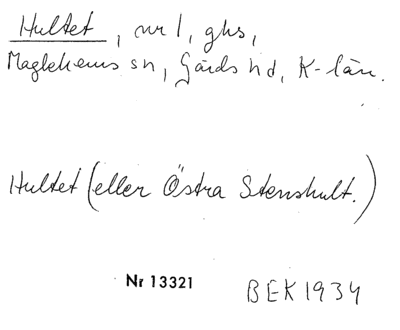 Hultet, nr 1, ghs,
Maglehems sn, Gärds hd, K-län.
Hultet (eller Östra Stenshult.)
Nr 13321
BEK 1934